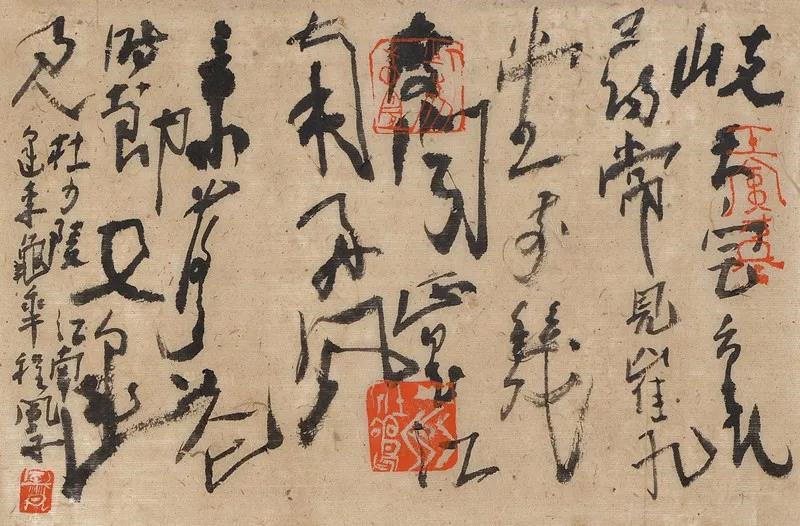 岐王宅裏
尋常見崔九
堂前幾
度聞正是江
南好風
景落花
時節又逢
君
杜少陵江南
逢李龜年程風子